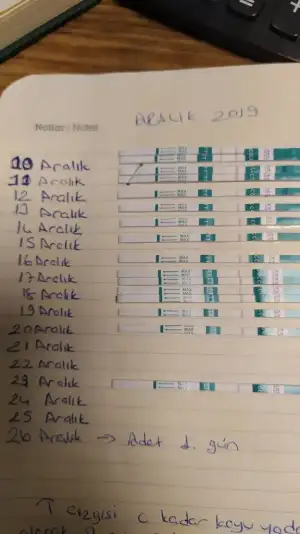 ARALIK 2019
Notlar - Notes
10 Aralık
11 Aralık
12 Aralık
13 Aralık
14 Aralık
15 Aralık
16 Aralık
17 Aralık
18 Aralık
19 Aralık
20 Aralık
21 Aralık
22 Aralık
23 Aralık
24 Aralık
25 Aralık
26 Aralık → Adet 1. gün
T çizgisi C kadar koyu